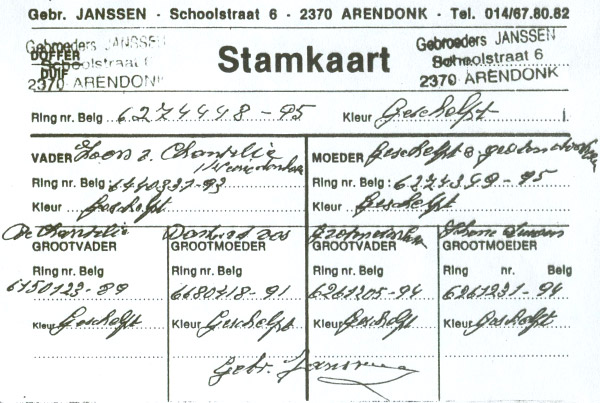 Gebr. JANSSEN - Schoolstraat 6 - 2370 ARENDONK - Tel. 014/67.80.82
Gebroeders JANSSEN
DOFFER
Schoolstraat 6
DUIF
2370 ARENDONK
Stamkaart
Gebroeders JANSSEN
Schoolstraat 6
2370 ARENDONK
Ring nr. Belg 6274448-95 Kleur Geschelpt
VADER Zoon v. Chantilis
Ring nr. Belg: 6440331-93
Kleur Geschelpt
MOEDER Geschelpt
Ring nr. Belg: 6274349-95
Kleur Geschelpt
De Chantilis
GROOTVADER
Ring nr. Belg
6150123-89
Kleur Geschelpt
GROOTMOEDER
Ring nr. Belg
6680418-91
Kleur Geschelpt
GROOTVADER
Ring nr. Belg
6261205-94
Kleur Geschelpt
GROOTMOEDER
Ring nr. Belg
6261231-94
Kleur Geschelpt
Gebr. Janssen